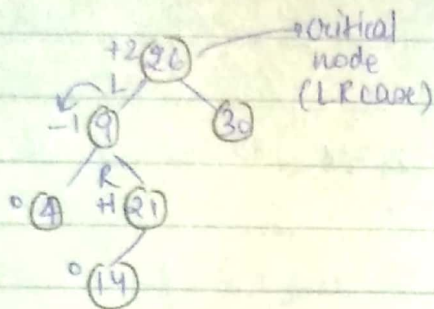 +2 26 critical
node
(LR case)
L
-1 9 30
R
0 4 +1 21
0 14